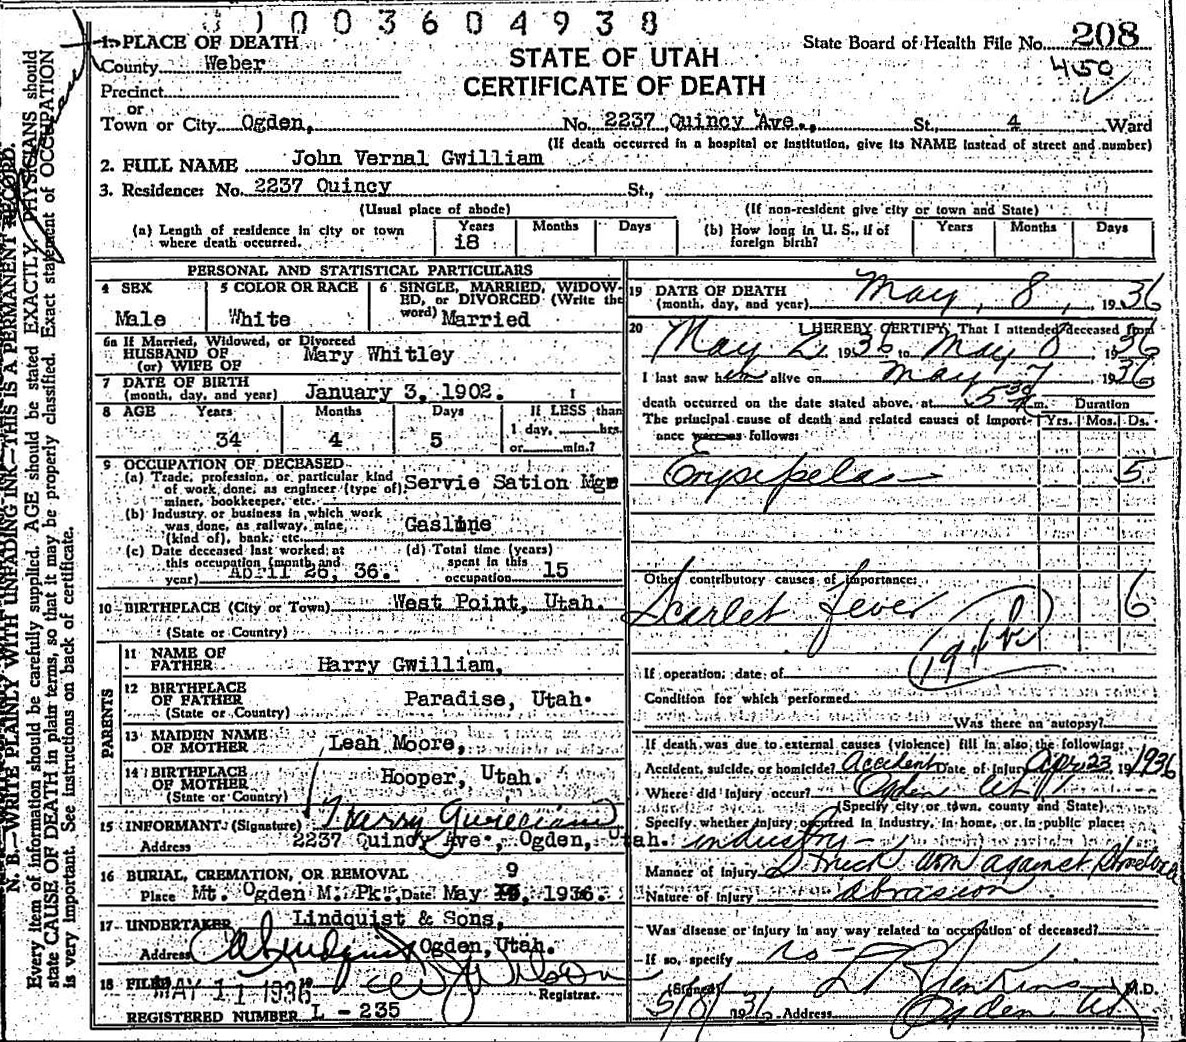 01003604938
1. PLACE OF DEATH
County Weber
Precinct
or
Town or City Ogden, No. 2237 Quincy Ave., St., 4 Ward
STATE OF UTAH
CERTIFICATE OF DEATH
State Board of Health File No. 208
450
(If death occurred in a hospital or institution, give its NAME instead of street and number)
2. FULL NAME John Vernal Gwilliam
3. Residence: No. 2237 Quincy St.,
(Usual place of abode) (If non-resident give city or town and State)
(a) Length of residence in city or town where death occurred. Years 18 Months Days
(b) How long in U. S., if of foreign birth? Years Months Days
PERSONAL AND STATISTICAL PARTICULARS
4 SEX Male
5 COLOR OR RACE White
6 SINGLE, MARRIED, WIDOWED, or DIVORCED (Write the word) Married
6a If Married, Widowed, or Divorced
HUSBAND OF
(or) WIFE OF Mary Whitley
7 DATE OF BIRTH
(month, day, and year) January 3, 1902.
8 AGE Years 34 Months 4 Days 5 If LESS than 1 day, hrs. or min.?
9 OCCUPATION OF DECEASED
(a) Trade, profession, or particular kind of work done, as engineer (type of), miner, bookkeeper, etc. Servie Sation Mgr
(b) Industry or business in which work was done, as railway, mine, (kind of), bank, etc. Gasline
(c) Date deceased last worked at this occupation (month and year) April 26, 36.
(d) Total time (years) spent in this occupation 15
10 BIRTHPLACE (City or Town) West Point, Utah.
(State or Country)
PARENTS
11 NAME OF FATHER Harry Gwilliam,
12 BIRTHPLACE OF FATHER Paradise, Utah.
(State or Country)
13 MAIDEN NAME OF MOTHER Leah Moore,
14 BIRTHPLACE OF MOTHER Hooper, Utah.
(State or Country)
15 INFORMANT (Signature) Harry Gwilliam
Address 2237 Quincy Ave., Ogden, Utah.
16 BURIAL, CREMATION, OR REMOVAL 9
Place Mt. Ogden M. Pk., Date May 1936.
17 UNDERTAKER Lindquist & Sons,
Address Ogden, Utah.
18 FILED MAY 11 1936
Registrar.
REGISTERED NUMBER L - 235
19 DATE OF DEATH
(month, day, and year) May, 8, 1936
20 I HEREBY CERTIFY, That I attended deceased from
May 2, 1936 to May 8 1936
I last saw him alive on May 7 1936
death occurred on the date stated above, at 5 30 m. Duration
The principal cause of death and related causes of importance were as follows: Yrs. Mos. Ds.
Erysipelas 5
Other contributory causes of importance:
Scarlet fever 6
If operation, date of
Condition for which performed
Was there an autopsy?
If death was due to external causes (violence) fill in also the following:
Accident, suicide, or homicide? Accident Date of Injury Apr 23, 1936
Where did injury occur? Ogden Ut
(Specify city or town, county and State)
Specify whether injury occurred in industry, in home, or in public place:
industry
Manner of Injury Struck arm against
Nature of Injury abrasion
Was disease or injury in any way related to occupation of deceased?
If so, specify no
(Signed) Jenkins M.D.
5/8/1936 Address Ogden Ut
N. B.—WRITE PLAINLY WITH UNFADING INK—THIS IS A PERMANENT RECORD.
Every item of information should be carefully supplied. AGE should be stated EXACTLY. PHYSICIANS should
state CAUSE OF DEATH in plain terms, so that it may be properly classified. Exact statement of OCCUPATION
is very important. See instructions on back of certificate.